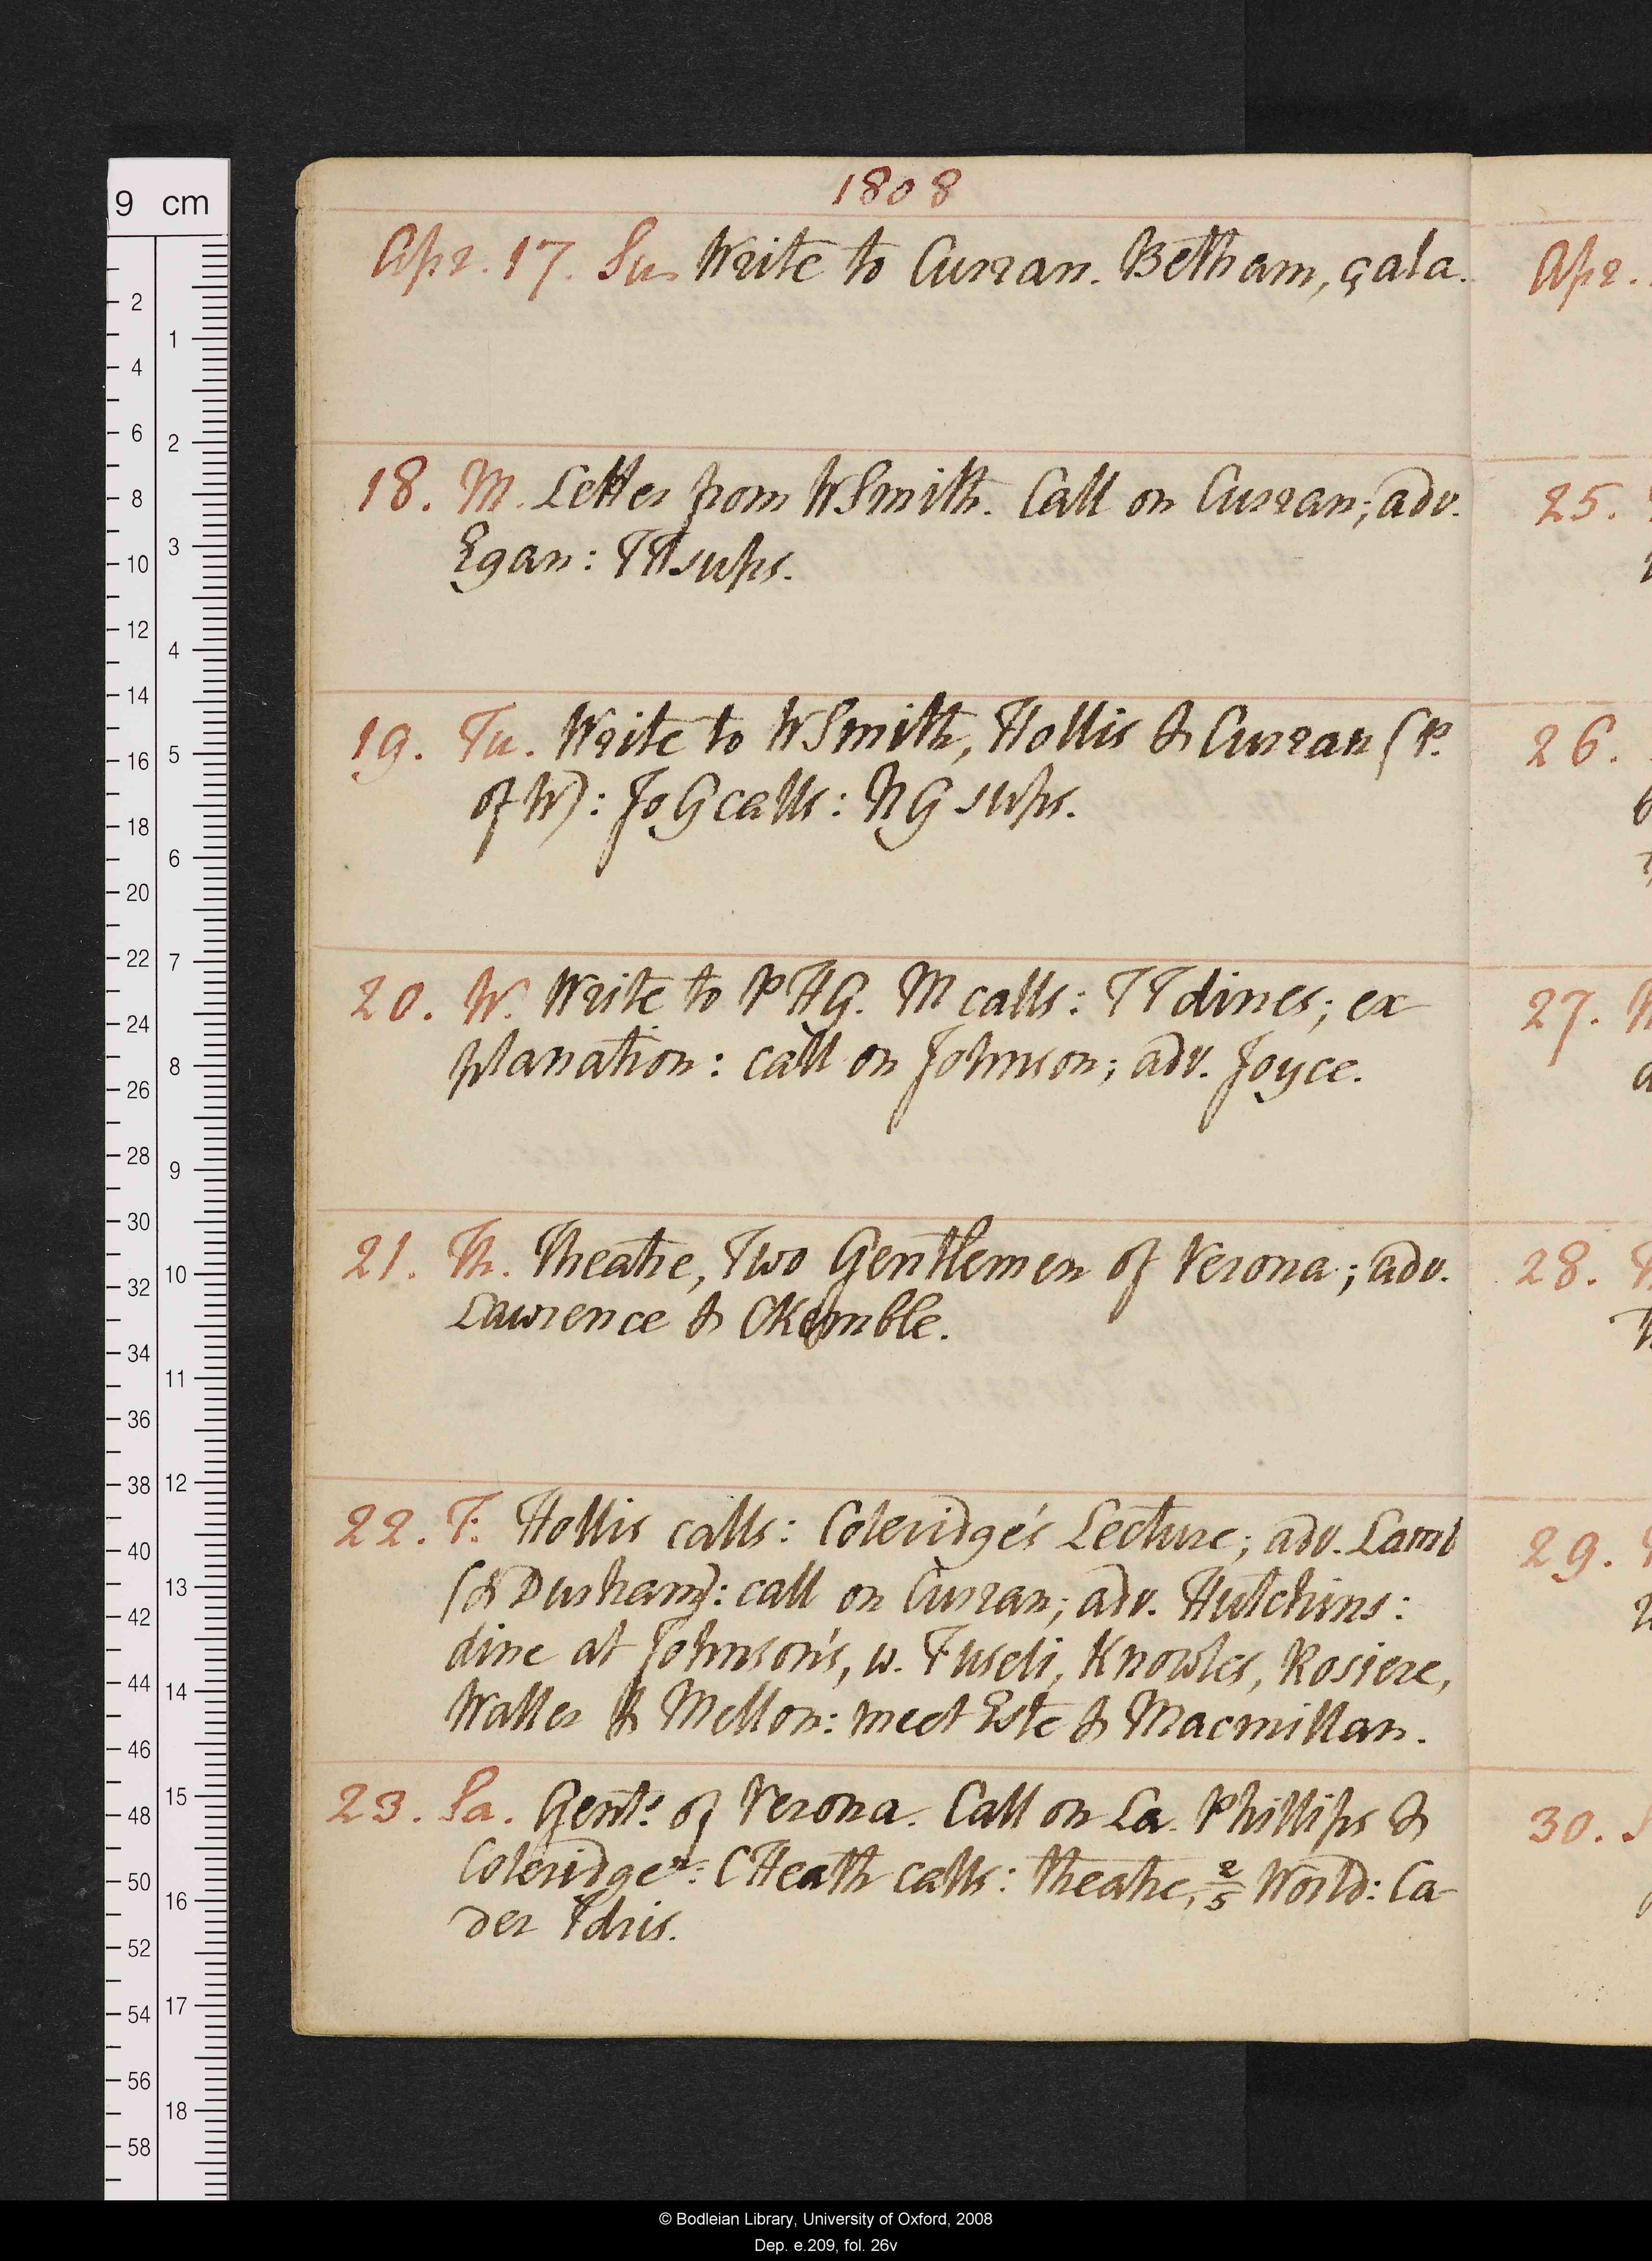 1808
Apr. 17. Su. Write to Curran. Betham, çala.
18. M. Letter from WSmith. Call on Curran; adv.
Egan: TT sups.
19. Tu. Write to WSmith, Hollis & Curran (P.
of W): JoG calls: NG sups.
20. W. Write to PHG. M calls: TT dines; ex-
planation: call on Johnson; adv. Joyce.
21. Th. Theatre, Two Gentlemen of Verona; adv.
Lawrence & CKemble.
22. F. Hollis calls: Coleridge's Lecture; adv. Lamb
(& Durham): call on Curran; adv. Hutchins:
dine at Johnson's, w. Fuseli, Knowles, Rosiere,
Walker & Mellon: meet Este & Macmillan.
23. Sa. Gents. of Verona. Call on La. Phillips &
Coleridge n: CHeath calls: theatre, 2/5 World: Ca-
der Idris.
Apr.
25.
26.
27.
28.
29.
30.
9 cm
2
4
6
8
10
12
14
16
18
20
22
24
26
28
30
32
34
36
38
40
42
44
46
48
50
52
54
56
58
1
2
3
4
5
6
7
8
9
10
11
12
13
14
15
16
17
18
© Bodleian Library, University of Oxford, 2008
Dep. e.209, fol. 26v